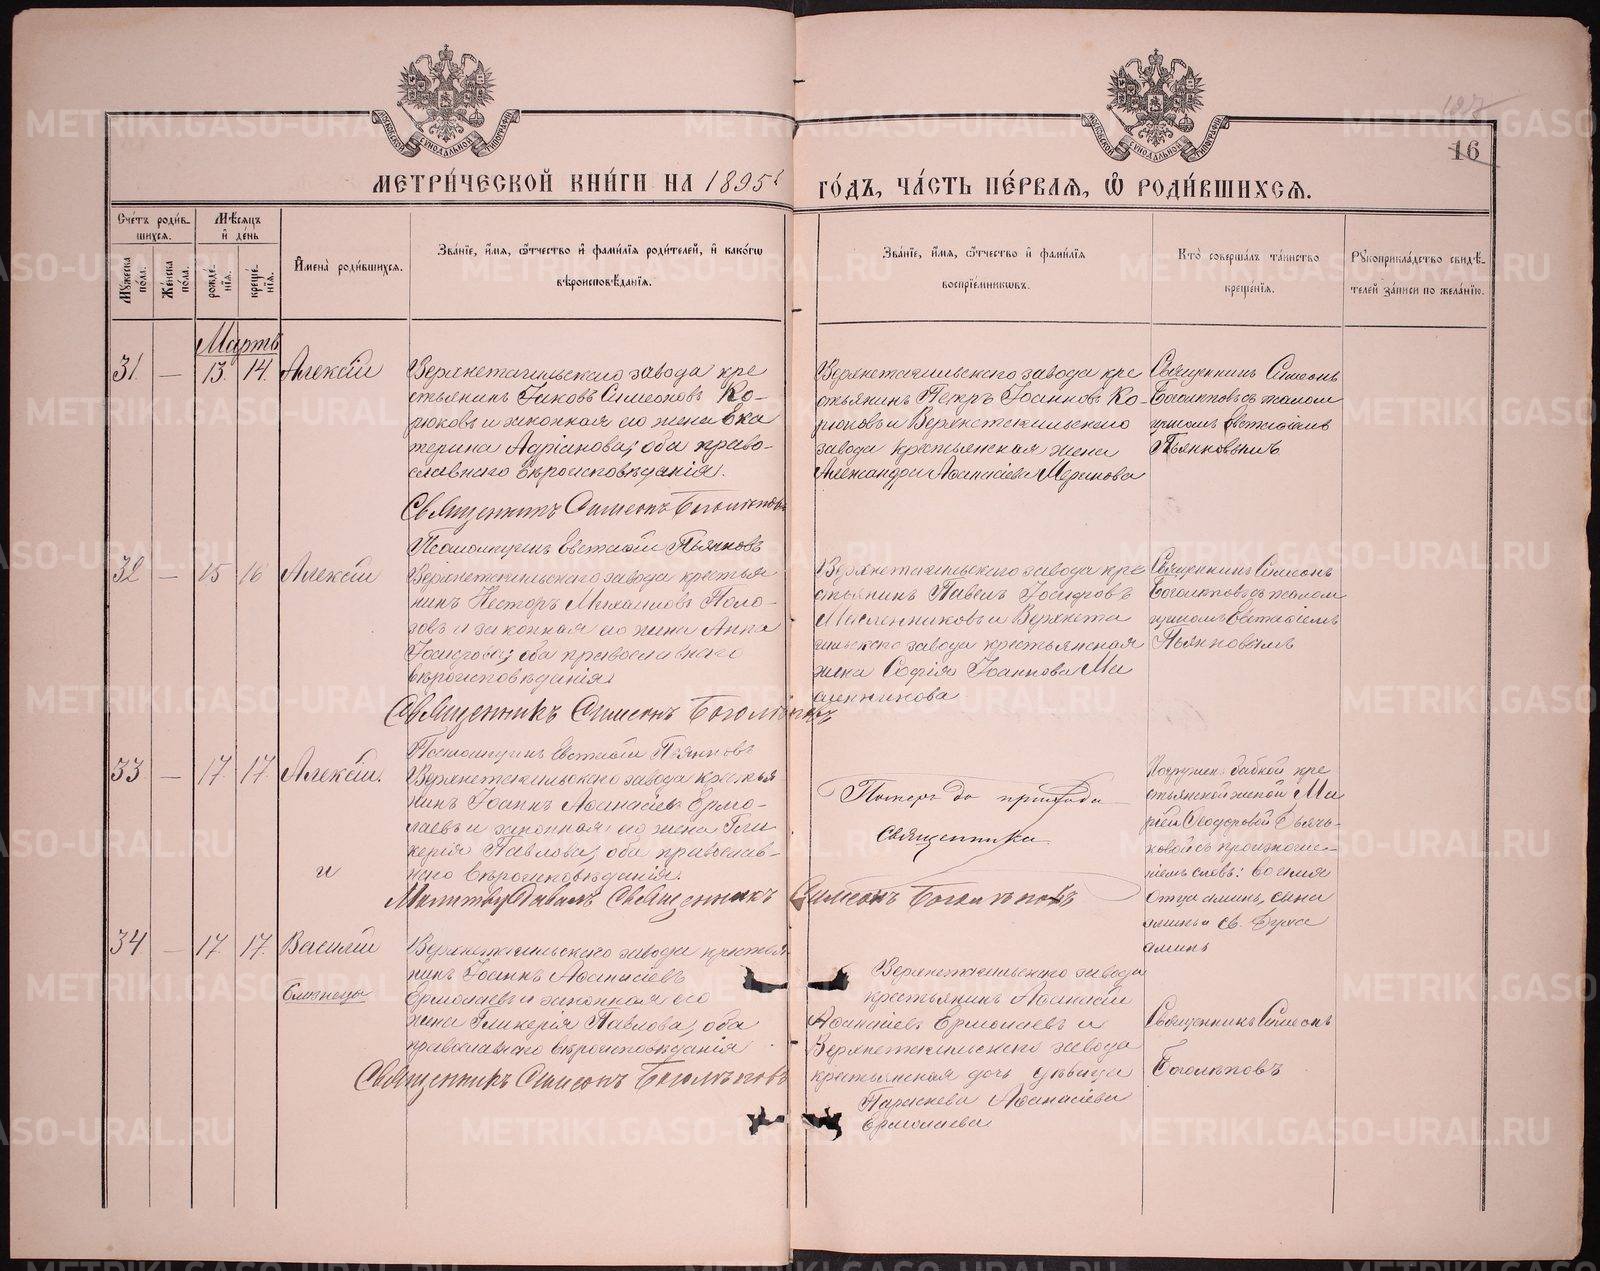 МОСКОВСКОЙ СѴНОДАЛЬНОЙ ТИПОГРАФІИ
МОСКОВСКОЙ СѴНОДАЛЬНОЙ ТИПОГРАФІИ
187
16
МЕТРИ́ЧЕСКОЙ КНИ́ГИ НА 1895й
ГО́ДЪ, ЧА́СТЬ ПЕ́РВАѦ, Ѡ РОДИ́ВШИХСѦ.
Сче́тъ роди́в-
шихсѧ.
Мꙋ́жеска по́ла.
Же́нска по́ла.
Мѣ́сѧцъ
и҆ де́нь
рожде́-
нїѧ.
креще́-
нїѧ.
И҆мена̀ роди́вшихсѧ.
Зва́нїе, и҆́мѧ, ѻ҆́тчество и҆ фами́лїѧ роди́телей, и҆ како́гѡ
вѣроисповѣ́данїѧ.
Зва́нїе, и҆́мѧ, ѻ҆́тчество и҆ фами́лїѧ
воспрїе́мникѡвъ.
Кто̀ соверша́лъ та́инство
креще́нїѧ.
Рꙋкоприкла́дство свидѣ́-
телей за́писи по жела́нїю.
Мартъ
31. — 13. 14. Алексій
Верхнетагильскаго завода кре
стьянинъ Іаковъ Симеоновъ Ко-
рюковъ и законная его жена Ека
терина Адріанова; оба право-
славнаго вѣроисповѣданія.
Священникъ Симеонъ Боголѣповъ
Псаломщикъ Евстафій Пьянковъ
Верхнетагильскаго завода кре
стьянинъ Петръ Іоанновъ Ко-
рюковъ и Верхнетагильскаго
завода крестьянская жена
Александра Аѳанасіева Меринова
Священникъ Симеонъ
Боголѣповъ съ псалом
щикомъ Евстафіемъ
Пьянковымъ
32 — 15 16 Алексій
Верхнетагильскаго завода крестья
нинъ Несторъ Михаиловъ Поло-
зовъ и законная его жена Анна
Іосифова; оба православнаго
вѣроисповѣданія.
Священникъ Симеонъ Боголѣповъ
Псаломщикъ Евстафій Пьянковъ
Верхнетагильскаго завода кре
стьянинъ Павелъ Іосифовъ
Масленниковъ и Верхнета
гильскаго завода крестьянская
жена Софія Іоаннова Ма
сленникова
Священникъ Симеонъ
Боголѣповъ съ псалом
щикомъ Евстафіемъ
Пьянковымъ
33 — 17. 17. Алексій.
и
Верхнетагильскаго завода крестья
нинъ Іоаннъ Аѳанасіевъ Ермо-
лаевъ и законная его жена Гли
керія Павлова; оба православ-
наго вѣроисповѣданія.
Молитву давалъ Священникъ Симеонъ Боголѣповъ
Померъ до прихода
священника.
Погруженъ бабкой кре
стьянской женой Ма
ріей Ѳедоровой Дьячь-
ковой съ произноше-
ніемъ словъ: во имя
отца аминь, сына
аминь и св. Духа
аминь
34 — 17. 17. Василій
близнецы
Верхнетагильскаго завода крестья
нинъ Іоаннъ Аѳанасіевъ
Ермолаевъ и законная его
жена Гликерія Павлова, оба
православнаго вѣроисповѣданія
Священникъ Симеонъ Боголѣповъ
Верхнетагильскаго завода
крестьянинъ Аѳанасій
Аѳанасіевъ Ермолаевъ и
Верхнетагильскаго завода
крестьянская дочь дѣвица
Параскева Аѳанасіева
Ермолаева
Священникъ Симеонъ
Боголѣповъ
METRIKI.GASO-URAL.RU